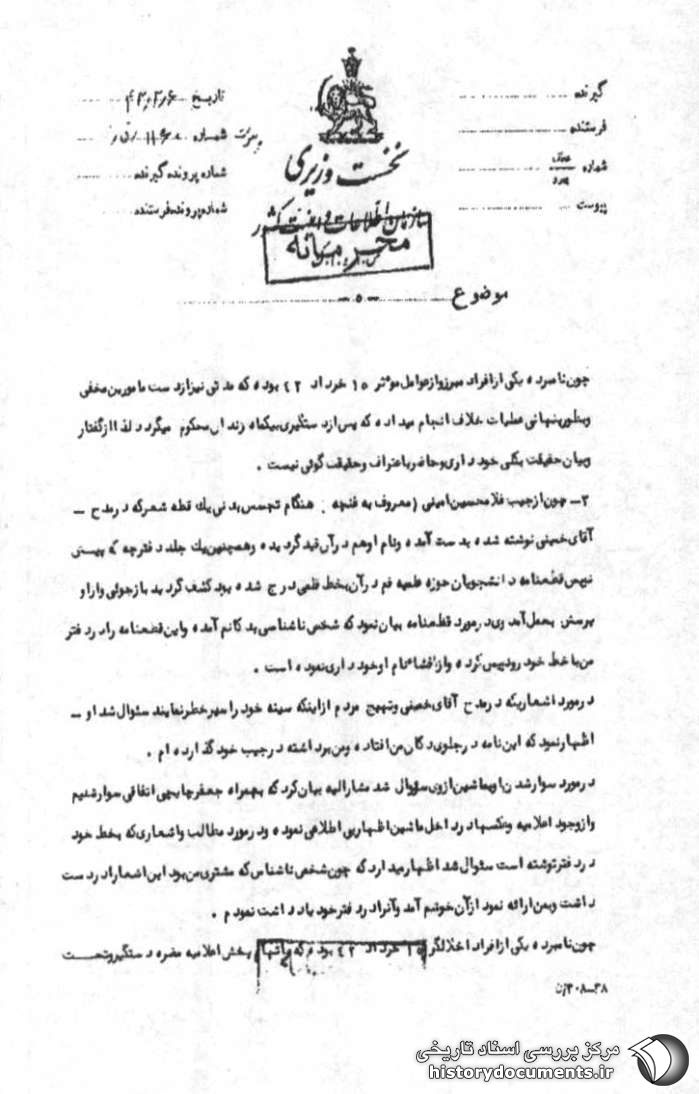 گیرنده
فرستنده
شماره
پیوست
تاریخ ۴۳٫۲٫۶
شماره
شماره پرونده گیرنده
شماره پرونده فرستنده
نخست وزیری
سازمان اطلاعات و امنیت کشور
محرمانه
موضوع
ـ ۵ ـ
چون نامبرده یکی از افراد مبرز و از عوامل موثر ۱۵ خرداد ۴۲ بوده که مدتی نیز از دست مامورین مخفی
وبطور پنهانی عملیات خلاف انجام میداده که پس از دستگیری بیکماه زندان محکوم میگردد لذا از گفتار
وبیان حقیقت بکلی خودداری وحاضر باعتراف وحقیقت گوئی نیست .
۳ـ چون از جیب غلامحسین امینی (معروف به غنچه . هنگام تجسس بدنی یك قطه شعر که در مدح ـ
آقای خمینی نوشته شده بدست آمده ونام او هم در آن قید گردیده وهمچنین یك جلد دفترچه که
نویس قطعنامه دانشجویان حوزه علمیه قم در آن بخط قلمی درج شده بود کشف گردید بازجوئی واز او
پرسش بعمل آمد وی در مورد قطعنامه بیان نمود که شخص ناشناسی بدکانم آمده واین قطعنامه را در دفتر
من با خط خود رونویس کرده واز افشاء نام او خودداری نموده است .
در مورد اشعاریکه در مدح آقای خمینی وتهیج مردم از اینکه سینه خود را سپر خطر نمایند سئوال شد او ـ
اظهار نمود که این نامه در جلوی دکان من افتاده ومن برداشته در جیب خود گذارده ام .
در مورد سوار شدن او بماشین ازوی سئوال شد مشارالیه بیان کرد که بهمراه جعفر چایچی اتفاقی سوار شدیم
واز وجود اعلامیه وعکسها در داخل ماشین اظهار بی اطلاعی نموده ودر مورد مطالب واشعاری که بخط خود
در دفتر نوشته است سئوال شد اظهار میدارد که چون شخص ناشناس که مشتری من بود این اشعار را در دست
داشت وبمن ارائه نمود از آن خوشم آمد وآنرا در دفتر خود یادداشت نمودم .
چون نامبرده یکی از افراد اخلالگر ۱۵ خرداد ۴۲ بوده که باتهام پخش اعلامیه مضره دستگیر وتحت
۳۸ـ۳۰۸/ن
مرکز بررسی اسناد تاریخی
historydocuments.ir